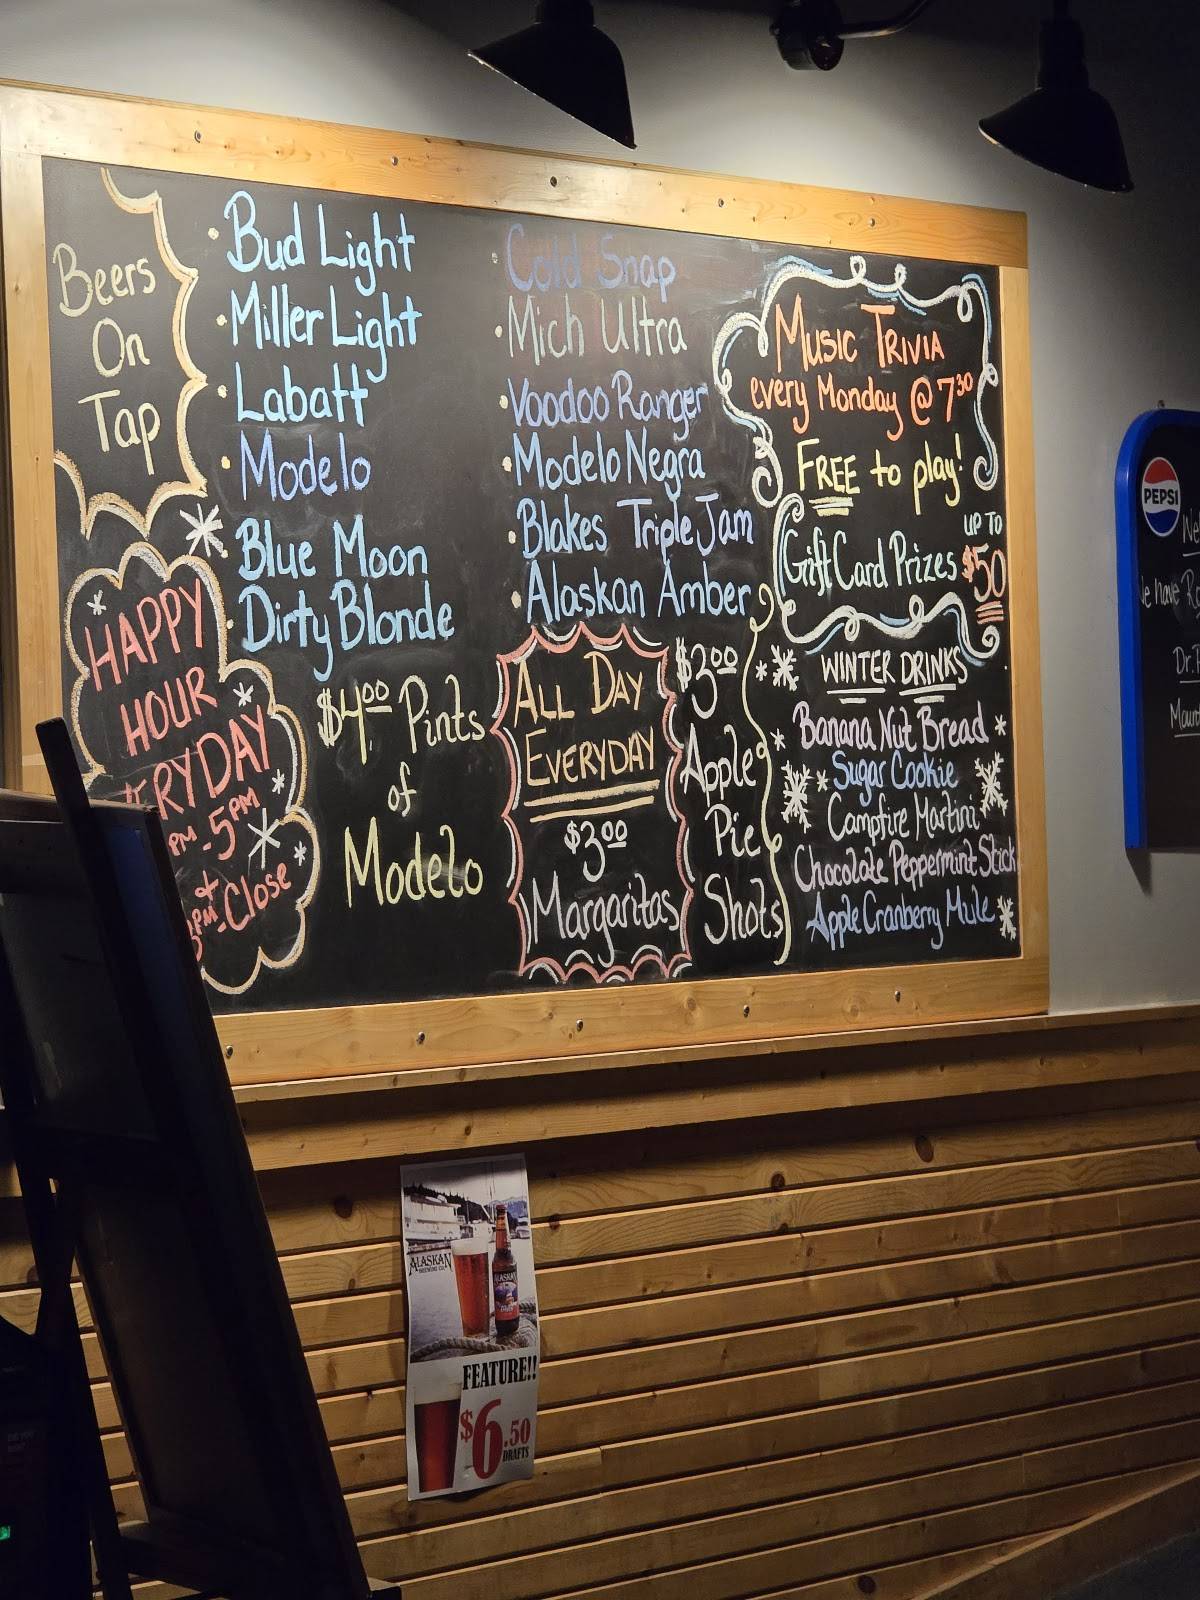 Beers
On
Tap
Bud Light
Miller Light
Labatt
Modelo
Blue Moon
Dirty Blonde
Cold Snap
Mich Ultra
Voodoo Ranger
Modelo Negra
Blakes Triple Jam
Alaskan Amber
Music Trivia
every Monday @ 7³⁰
FREE to play!
Gift Card Prizes
UP TO
$50
HAPPY
HOUR
ERYDAY
PM - 5PM
+
PM - Close
$4.00 Pints
of
Modelo
ALL DAY
EVERYDAY
$3.00
Margaritas
$3.00
Apple
Pie
Shots
WINTER DRINKS
Banana Nut Bread
Sugar Cookie
Campfire Martini
Chocolate Peppermint Stick
Apple Cranberry Mule
PEPSI
We have
ALASKAN
BREWING CO.
ALASKAN
FEATURE!!
$6.50
DRAFTS